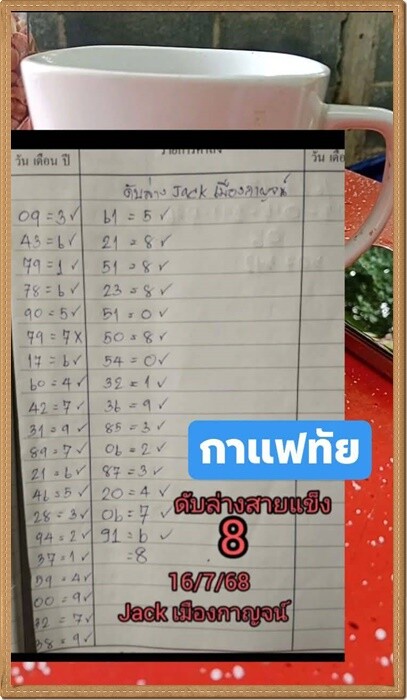 วัน เดือน ปี
วัน เดือ
ดับล่าง Jack เมืองกาญจน์
09 = 3 ✓
43 = 6 ✓
79 = 1 ✓
78 = 6 ✓
90 = 5 ✓
79 = 7 X
17 = 6 ✓
60 = 4 ✓
42 = 7 ✓
31 = 9 ✓
89 = 7 ✓
21 = 6 ✓
46 = 5 ✓
28 = 3 ✓
94 = 2 ✓
37 = 1 ✓
59 = 4 ✓
00 = 9 ✓
32 = 7 ✓
38 = 9 ✓
61 = 5 ✓
21 = 8 ✓
51 = 8 ✓
23 = 8 ✓
51 = 0 ✓
50 = 8 ✓
54 = 0 ✓
32 = 1 ✓
36 = 9 ✓
85 = 3 ✓
06 = 2 ✓
87 = 3 ✓
20 = 4 ✓
06 = 7 ✓
91 = 6 ✓
= 8
กาแฟทัย
ดับล่างสายแข็ง
8
16/7/68
Jack เมืองกาญจน์